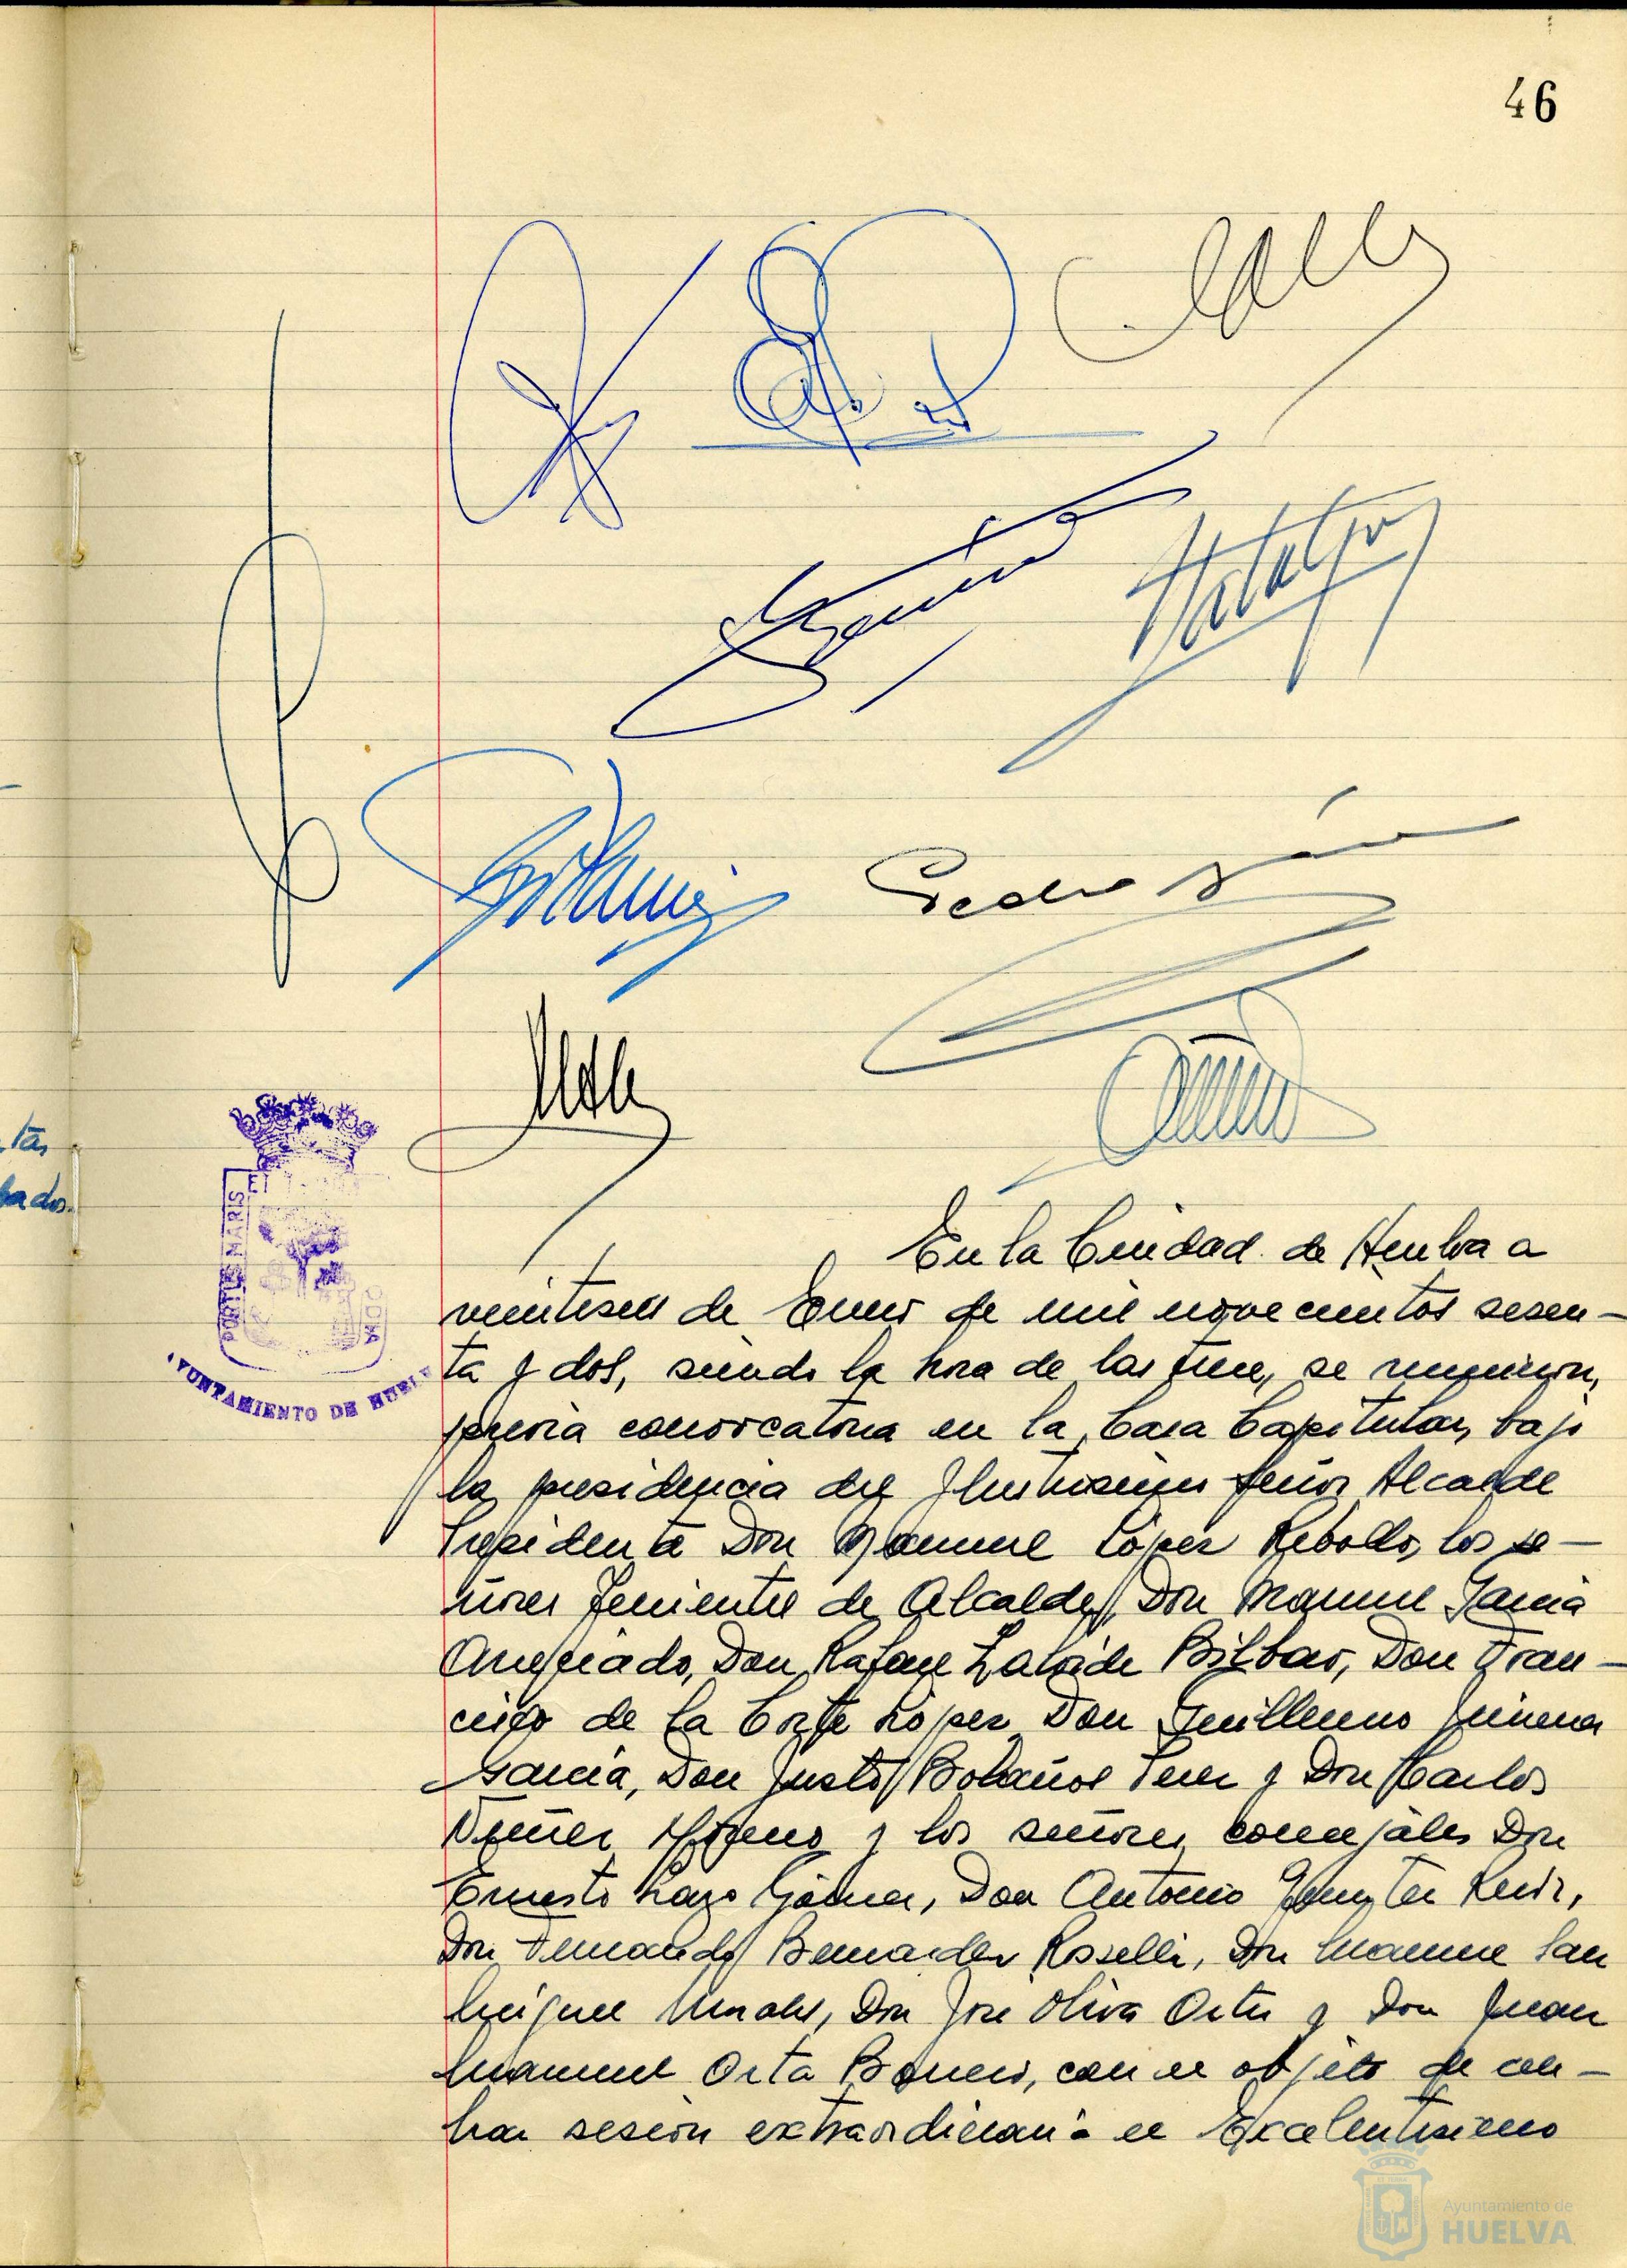 46
tas
bados.
PORTUS MARIS
ET
AYUNTAMIENTO DE HUELVA
Pedro
En la Ciudad de Huelva a
veintiseis de Enero de mil novecientos sesen-
ta y dos, siendo la hora de las trece, se reunieron,
previa convocatoria en la Casa Capitular, bajo
la presidencia del Ilustrisimo señor Alcalde
Presidente Don Manuel López Rebollo, los se-
ñores Tenientes de Alcalde, Don Manuel Garcia
Anguiado, Don Rafael Bilbao, Don Fran-
cisco de la Corte López Don Guillermo Jimenez
Garcia, Don Justo Bolaños Perez y Don Carlos
Nuñez Moreno y los señores concejales Don
Ernesto Lazo Gómez, Don Antonio Ruiz,
Don Fernando Bernardez Roselli, Don Manuel San
Miguel Morales, Don José Oliva Ortiz y Don Juan
Manuel Orta Borrero, con el objeto de cele-
brar sesión extraordinaria el Excelentisimo
Ayuntamiento de
HUELVA